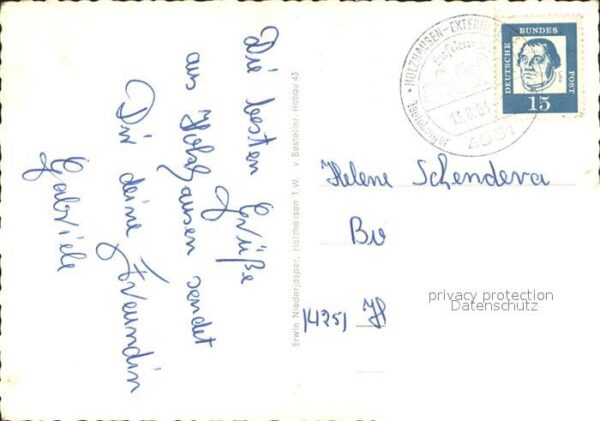 Die besten Grüße
aus Holzhausen sendet
Dir deine Freundin
Gabriele
Erwin Niederjasper, Holzhausen T.W. Bestellnr. Hohau 43
HOLZHAUSEN-EXTERN
4931
DEUTSCHE BUNDES POST
15
Helene Schendera
Bu
4251 H
privacy protection
Datenschutz